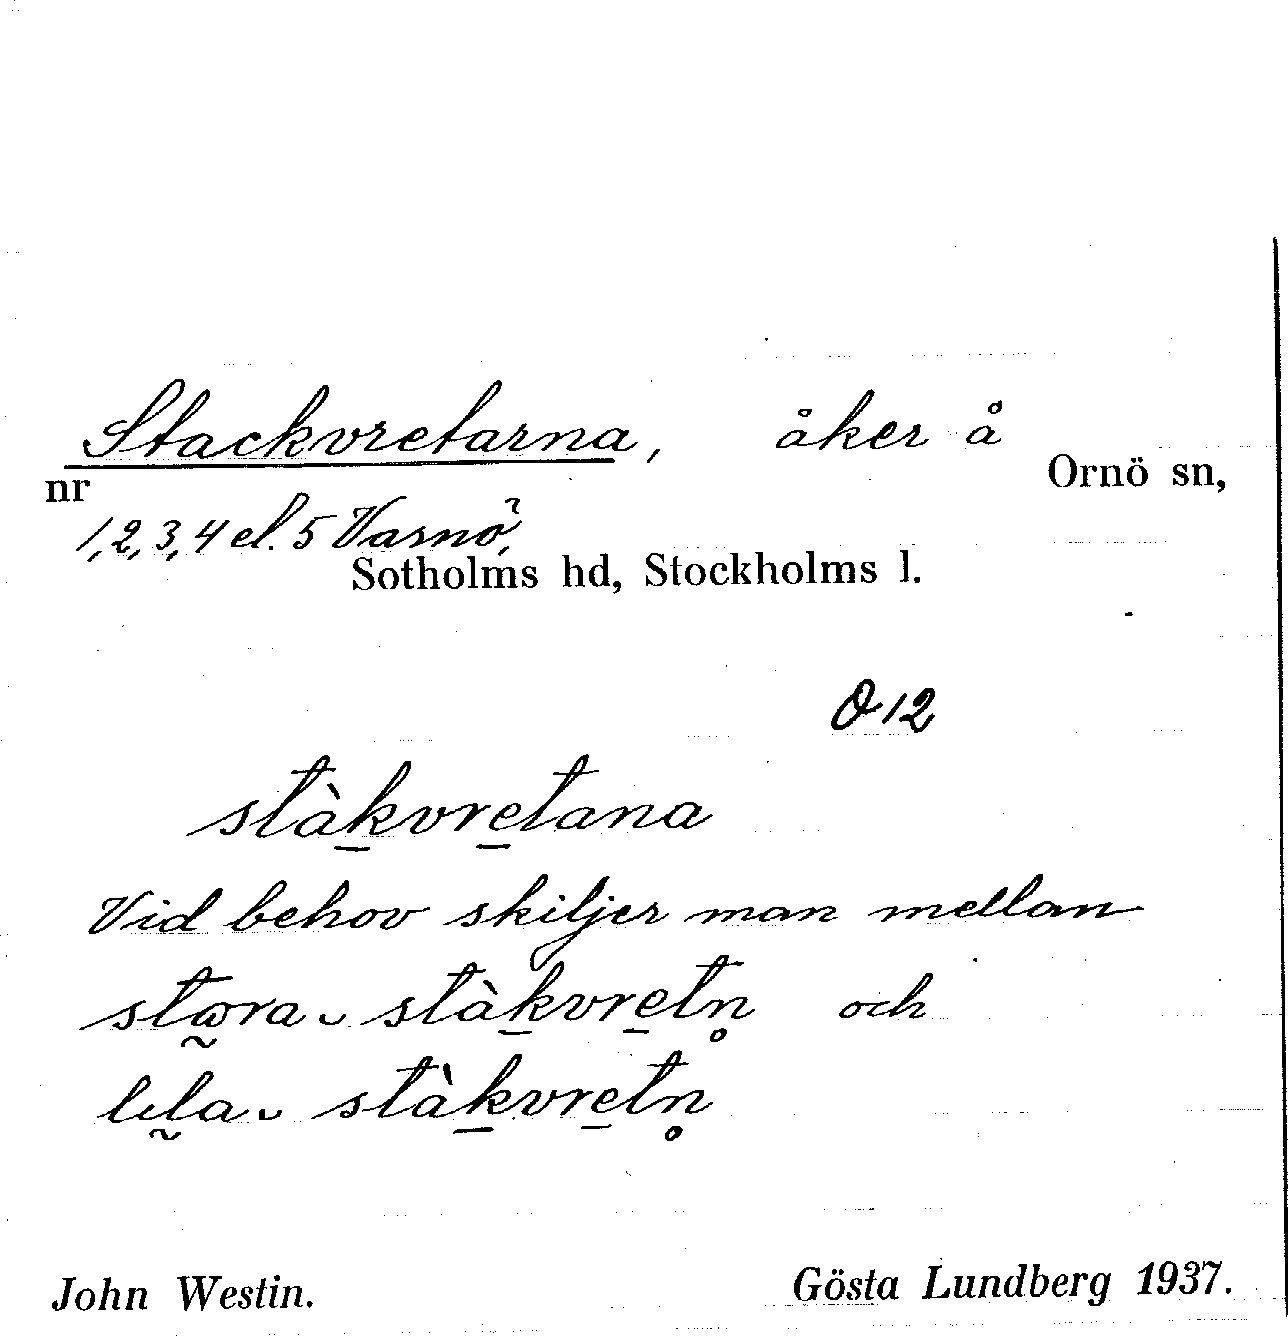 Stackvretarna, åker å
nr Ornö sn,
1, 2, 3, 4 el. 5 Varnö,
Sotholms hd, Stockholms l.
O 12
stàk̲vre̲tana
Vid behov skiljer man mellan
stɷ̰ra ‿ stàk̲vre̲tn̥ och
lıl̰a ‿ stàk̲vre̲tn̥
John Westin. Gösta Lundberg 1937.